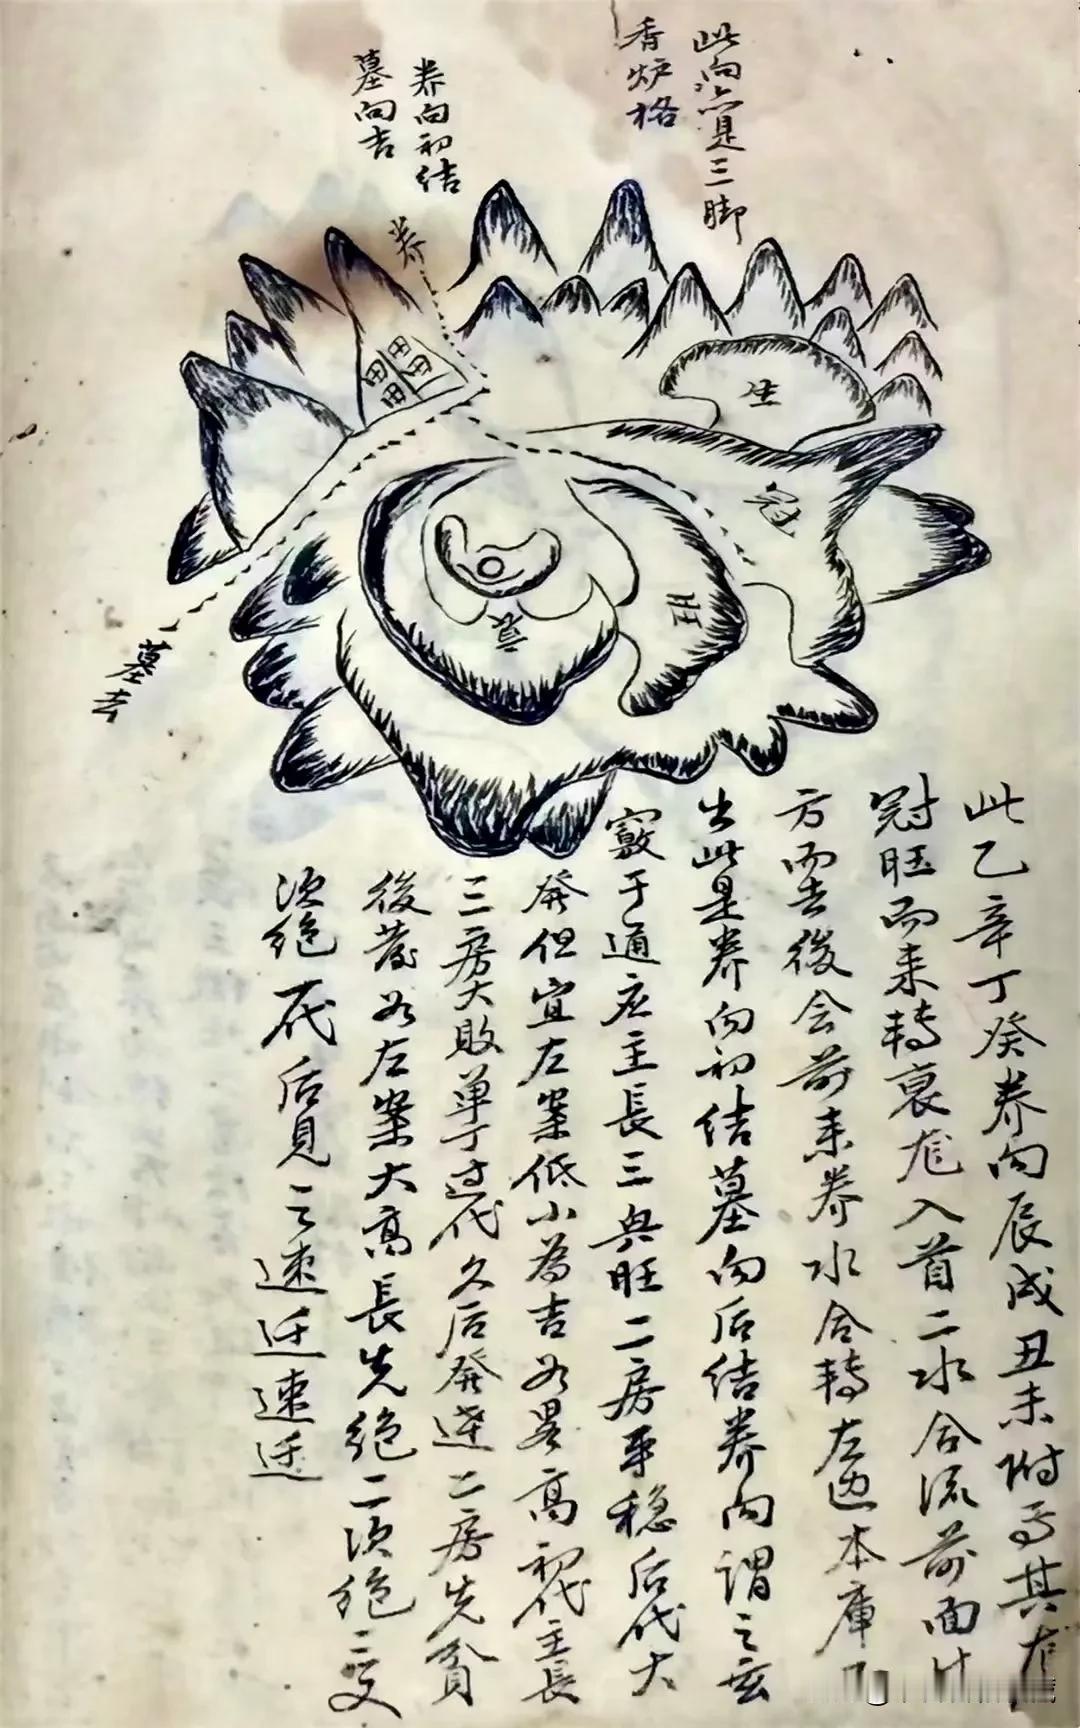 此向亦是三脚
香炉格
养向初结
墓向吉
养
生
冠
旺
衰
墓去
此乙辛丁癸养向辰戌丑未附焉其龙
冠旺而来转衰龙入首二水合流前面
方而去后会前来养水合转左边本库
出此是养向初结墓向后结养向谓之玄
窍于通应主長三兴旺二房平稳后代大
发但宜左案低小為吉若是高初代主長
三房大败单丁过代久后发达二房先贫
後发若左案大高長先绝二次绝三又
次绝一代后見之速迁速迁